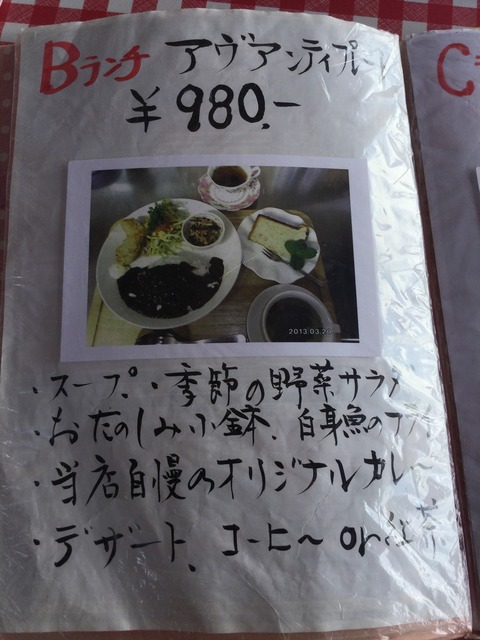 Bランチ アヴァンティプレート
¥980.-
2013.03.20
・スープ、・季節の野菜サラダ
・おたのしみ小鉢、白身魚のフライ
・当店自慢のオリジナルカレー
・デザート、コーヒー or 紅茶
C